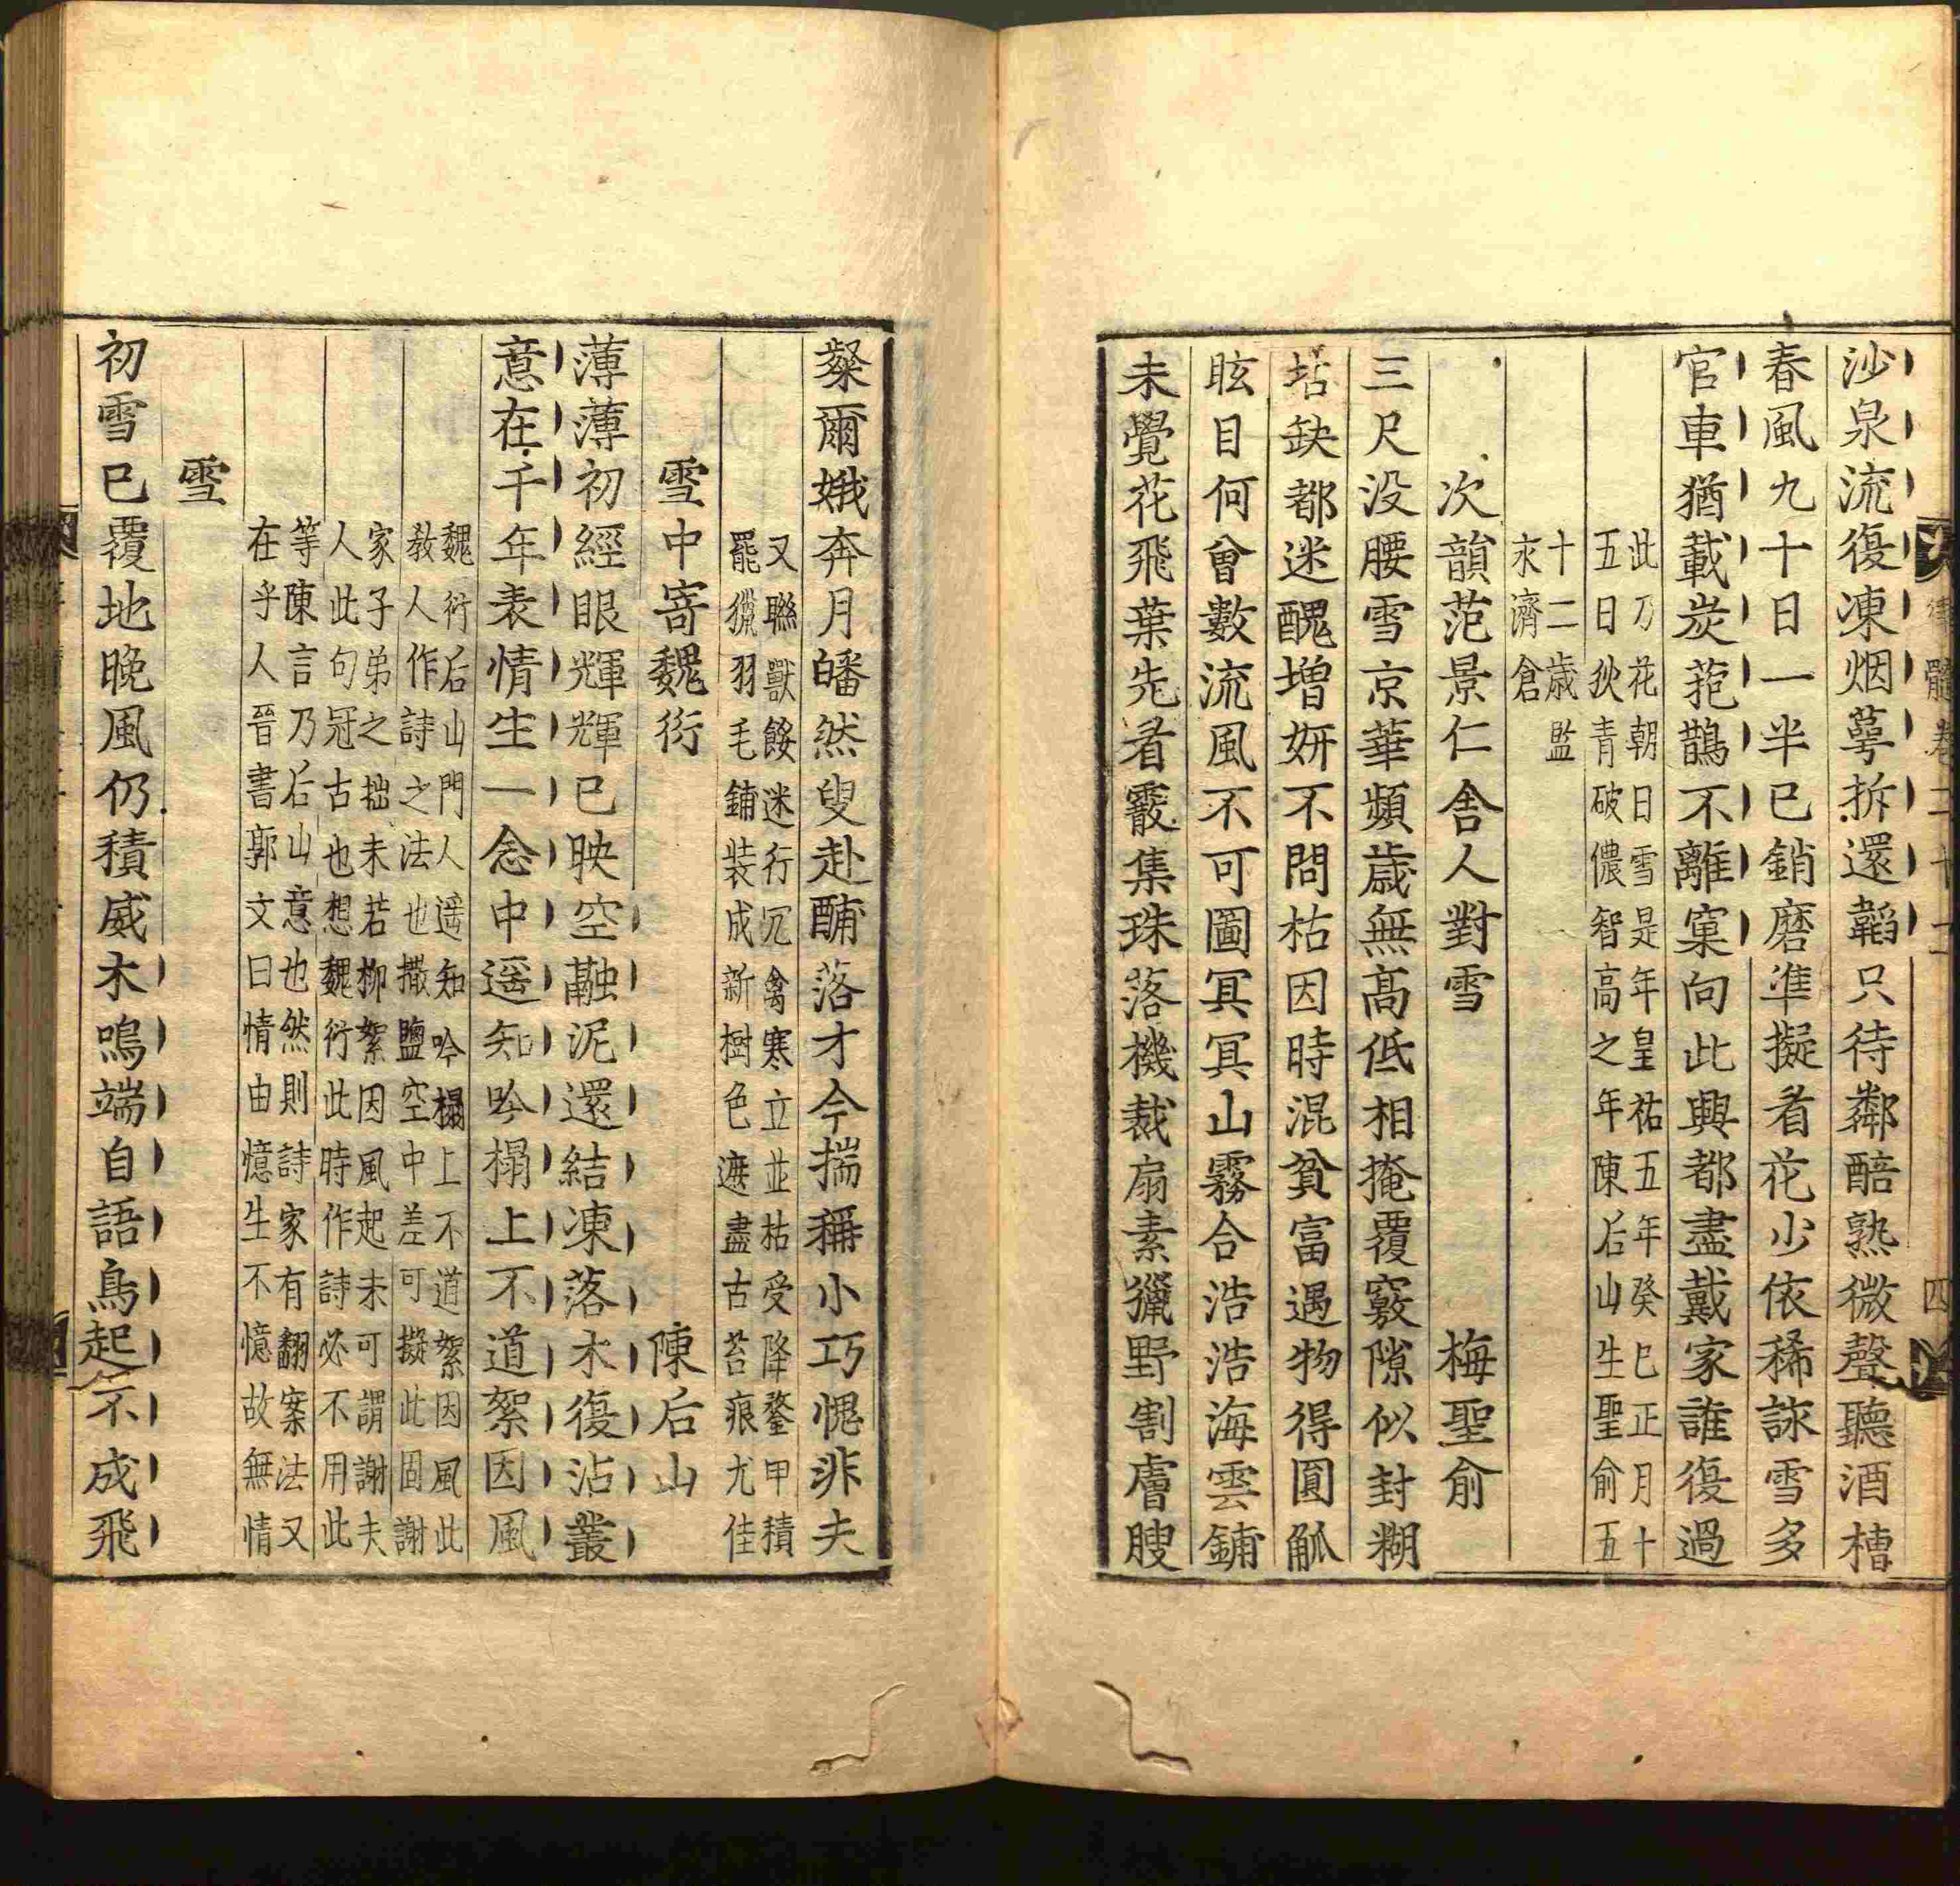 律髓卷二十一
四
沙泉流復凍烟萼拆還韜只待鄰醅熟微聲聽酒槽
春風九十日一半已銷磨準擬看花少依稀詠雪多
官車猶載炭菢鵲不離窠向此興都盡戴家誰復過
此乃花朝日雪是年皇祐五年癸巳正月十
五日狄青破儂智高之年陳后山生聖俞五
十二歲監
永濟倉
次韻范景仁舍人對雪 梅聖俞
三尺没腰雪京華頻歲無高低相掩覆竅隙似封糊
坫缺都迷醜增妍不問枯因時混貧富遇物得圓觚
眩目何曾數流風不可圖冥冥山霧合浩浩海雲鋪
未覺花飛葉先看霰集珠落機裁扇素獵野割膚腴
粲爾娥奔月皤然叟赴酺落才今揣稱小巧愧非夫
又聯獸餒迷行冗禽寒立並枯受降鍪甲積
罷獵羽毛鋪裝成新樹色遮盡古苔痕尤佳
雪中寄魏衍 陳后山
薄薄初經眼輝輝已映空融泥還結凍落木復沾叢
意在千年表情生一念中遥知吟榻上不道絮因風
魏衍后山門人遥知吟榻上不道絮因風此
教人作詩之法也撒鹽空中差可擬此固謝
家子弟之拙未若柳絮因風起未可謂謝夫
人此句冠古也想魏衍此時作詩必不用此
等陳言乃后山意也然則詩家有翻案法又
在乎人晉書郭文曰情由憶生不憶故無情
雪
初雪已覆地晚風仍積威木鳴端自語鳥起不成飛